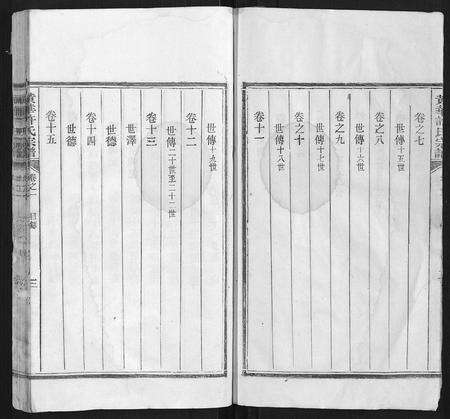 黃華許氏宗譜
卷之七
世傳十五世
卷之八
世傳十六世
卷之九
世傳十七世
卷之十
世傳十八世
卷十一
世傳十九世
卷十二
世傳二十世至二十二世
卷十三
世澤
世德
卷十四
世德
卷十五
黃華許氏宗譜 卷之一 目錄 三